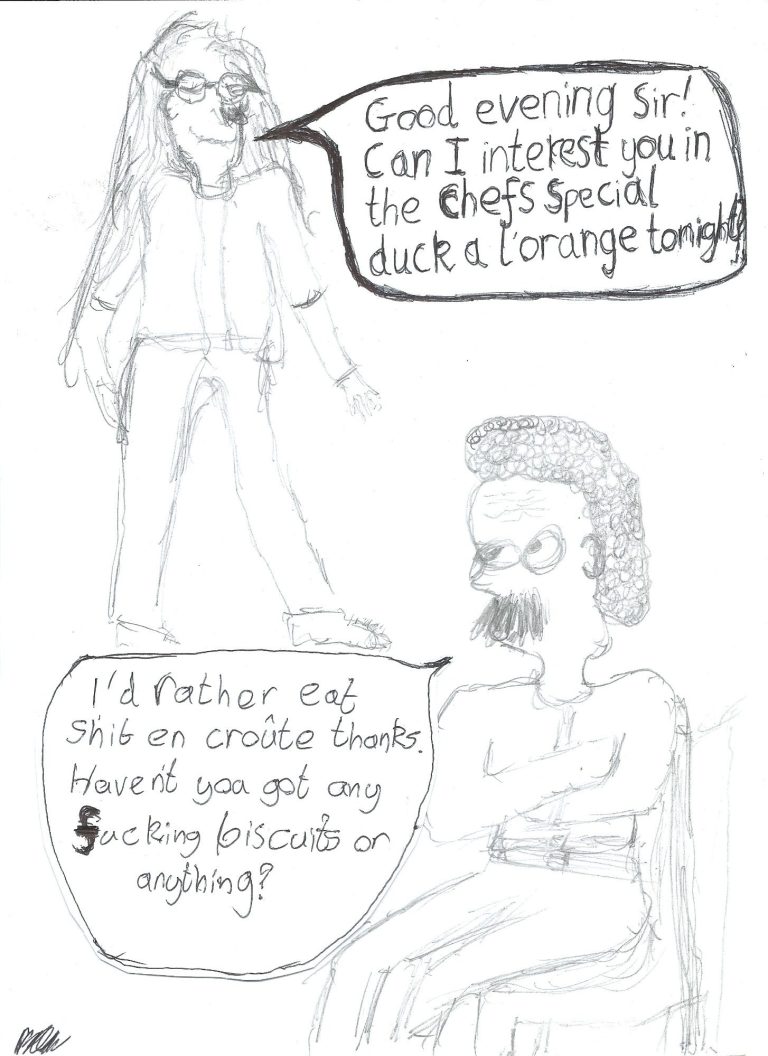 Good evening Sir!
Can I interest you in
the Chefs Special
duck a l'orange tonight?
I'd rather eat
Shit en croûte thanks.
Haven't you got any
fucking biscuits or
anything?